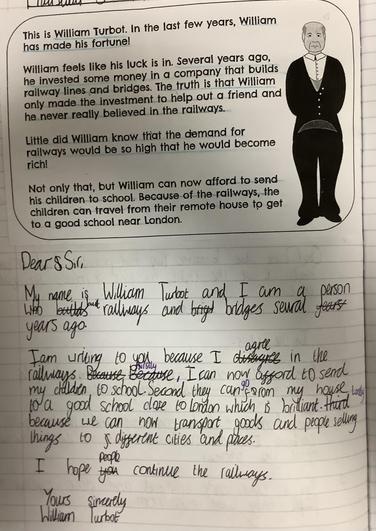 This is William Turbot. In the last few years, William
has made his fortune!
William feels like his luck is in. Several years ago,
he invested some money in a company that builds
railway lines and bridges. The truth is that William
only made the investment to help out a friend and
he never really believed in the railways.
Little did William know that the demand for
railways would be so high that he would become
rich!
Not only that, but William can now afford to send
his children to school. Because of the railways, the
children can travel from their remote house to get
to a good school near London.
Dear Sir,
My name is William Turbot and I am a person
who builds railways and bridges sevral years
years ago.
agree
I am writing to you because I disagree in the
railways. Because Because, firstly I can now afford to send
my children to school. Second they can go from my house
to a good school close to London which is brilliant. Third
because we can now transport goods and people selling
things to different cities and places.
people
I hope you continue the railways.
Yours sincerely
William Turbot